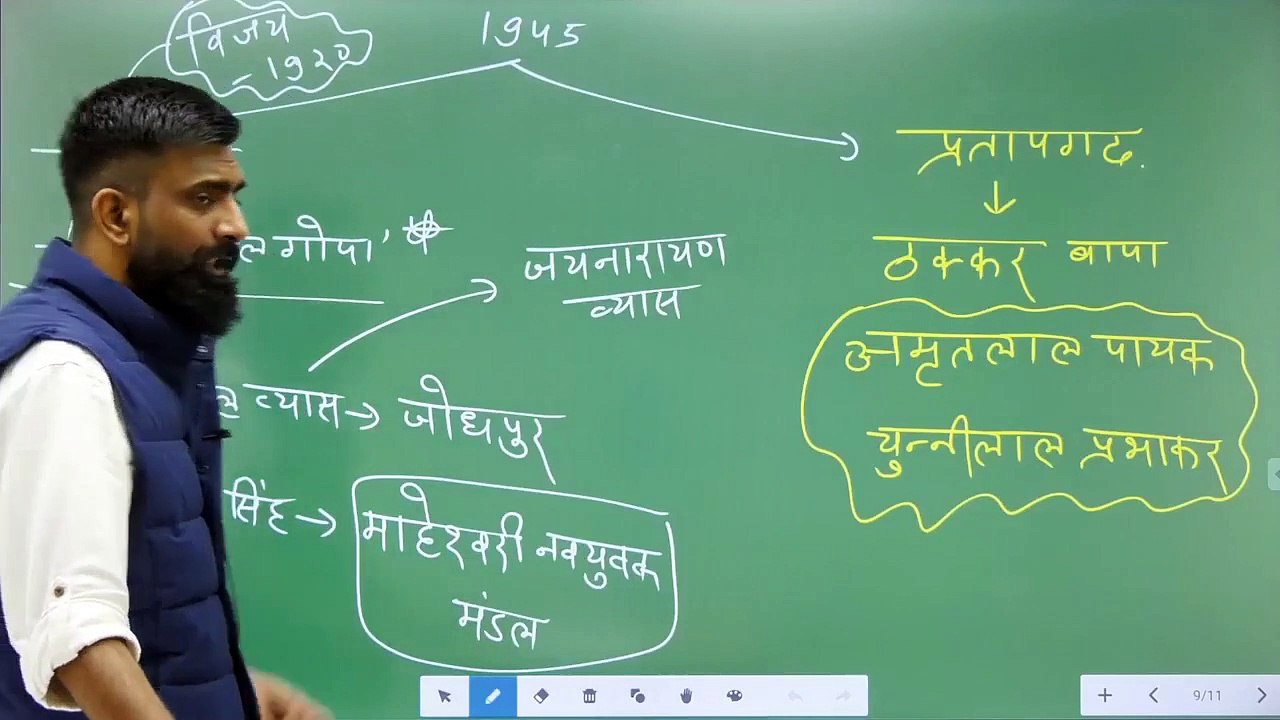 विजय
- 1920
1945
प्रतापगढ़
ठक्कर बापा
गोपा'
जयनारायण
व्यास
अमृतलाल पायक
व्यास → जोधपुर
चुन्नीलाल प्रभाकर
सिंह → माहेश्वरी नवयुवक
मंडल
9/11